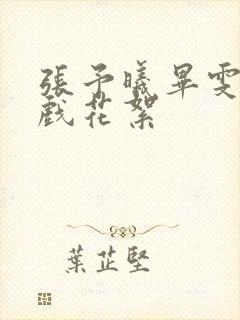 張予曦畢雯
戲花絮
葉芷堅